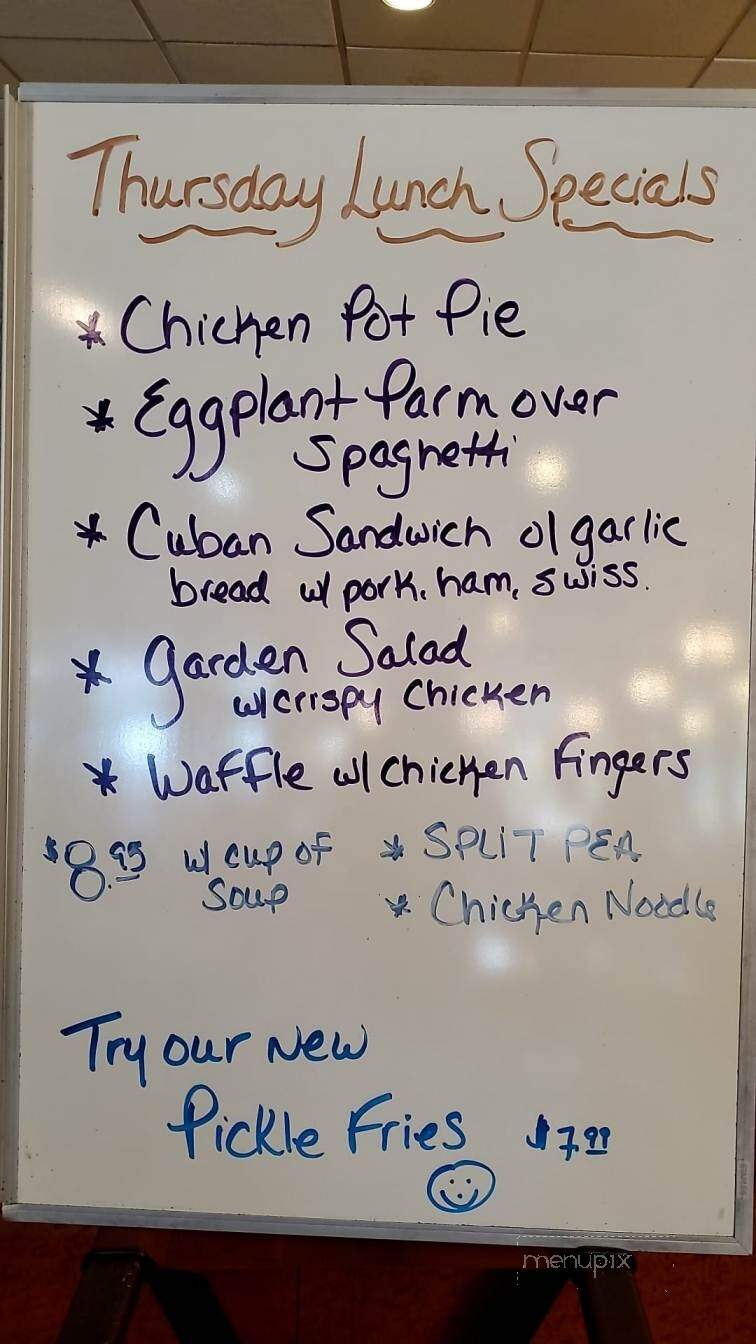 Thursday Lunch Specials
* Chicken Pot Pie
* Eggplant Parm over
Spaghetti
* Cuban Sandwich o/ garlic
bread w/ pork, ham, swiss.
* Garden Salad
w/crispy Chicken
* Waffle w/ chicken Fingers
$8.95 w/ cup of
Soup
* SPLIT PEA
* Chicken Noodle
Try our New
Pickle Fries $7.99
menupix